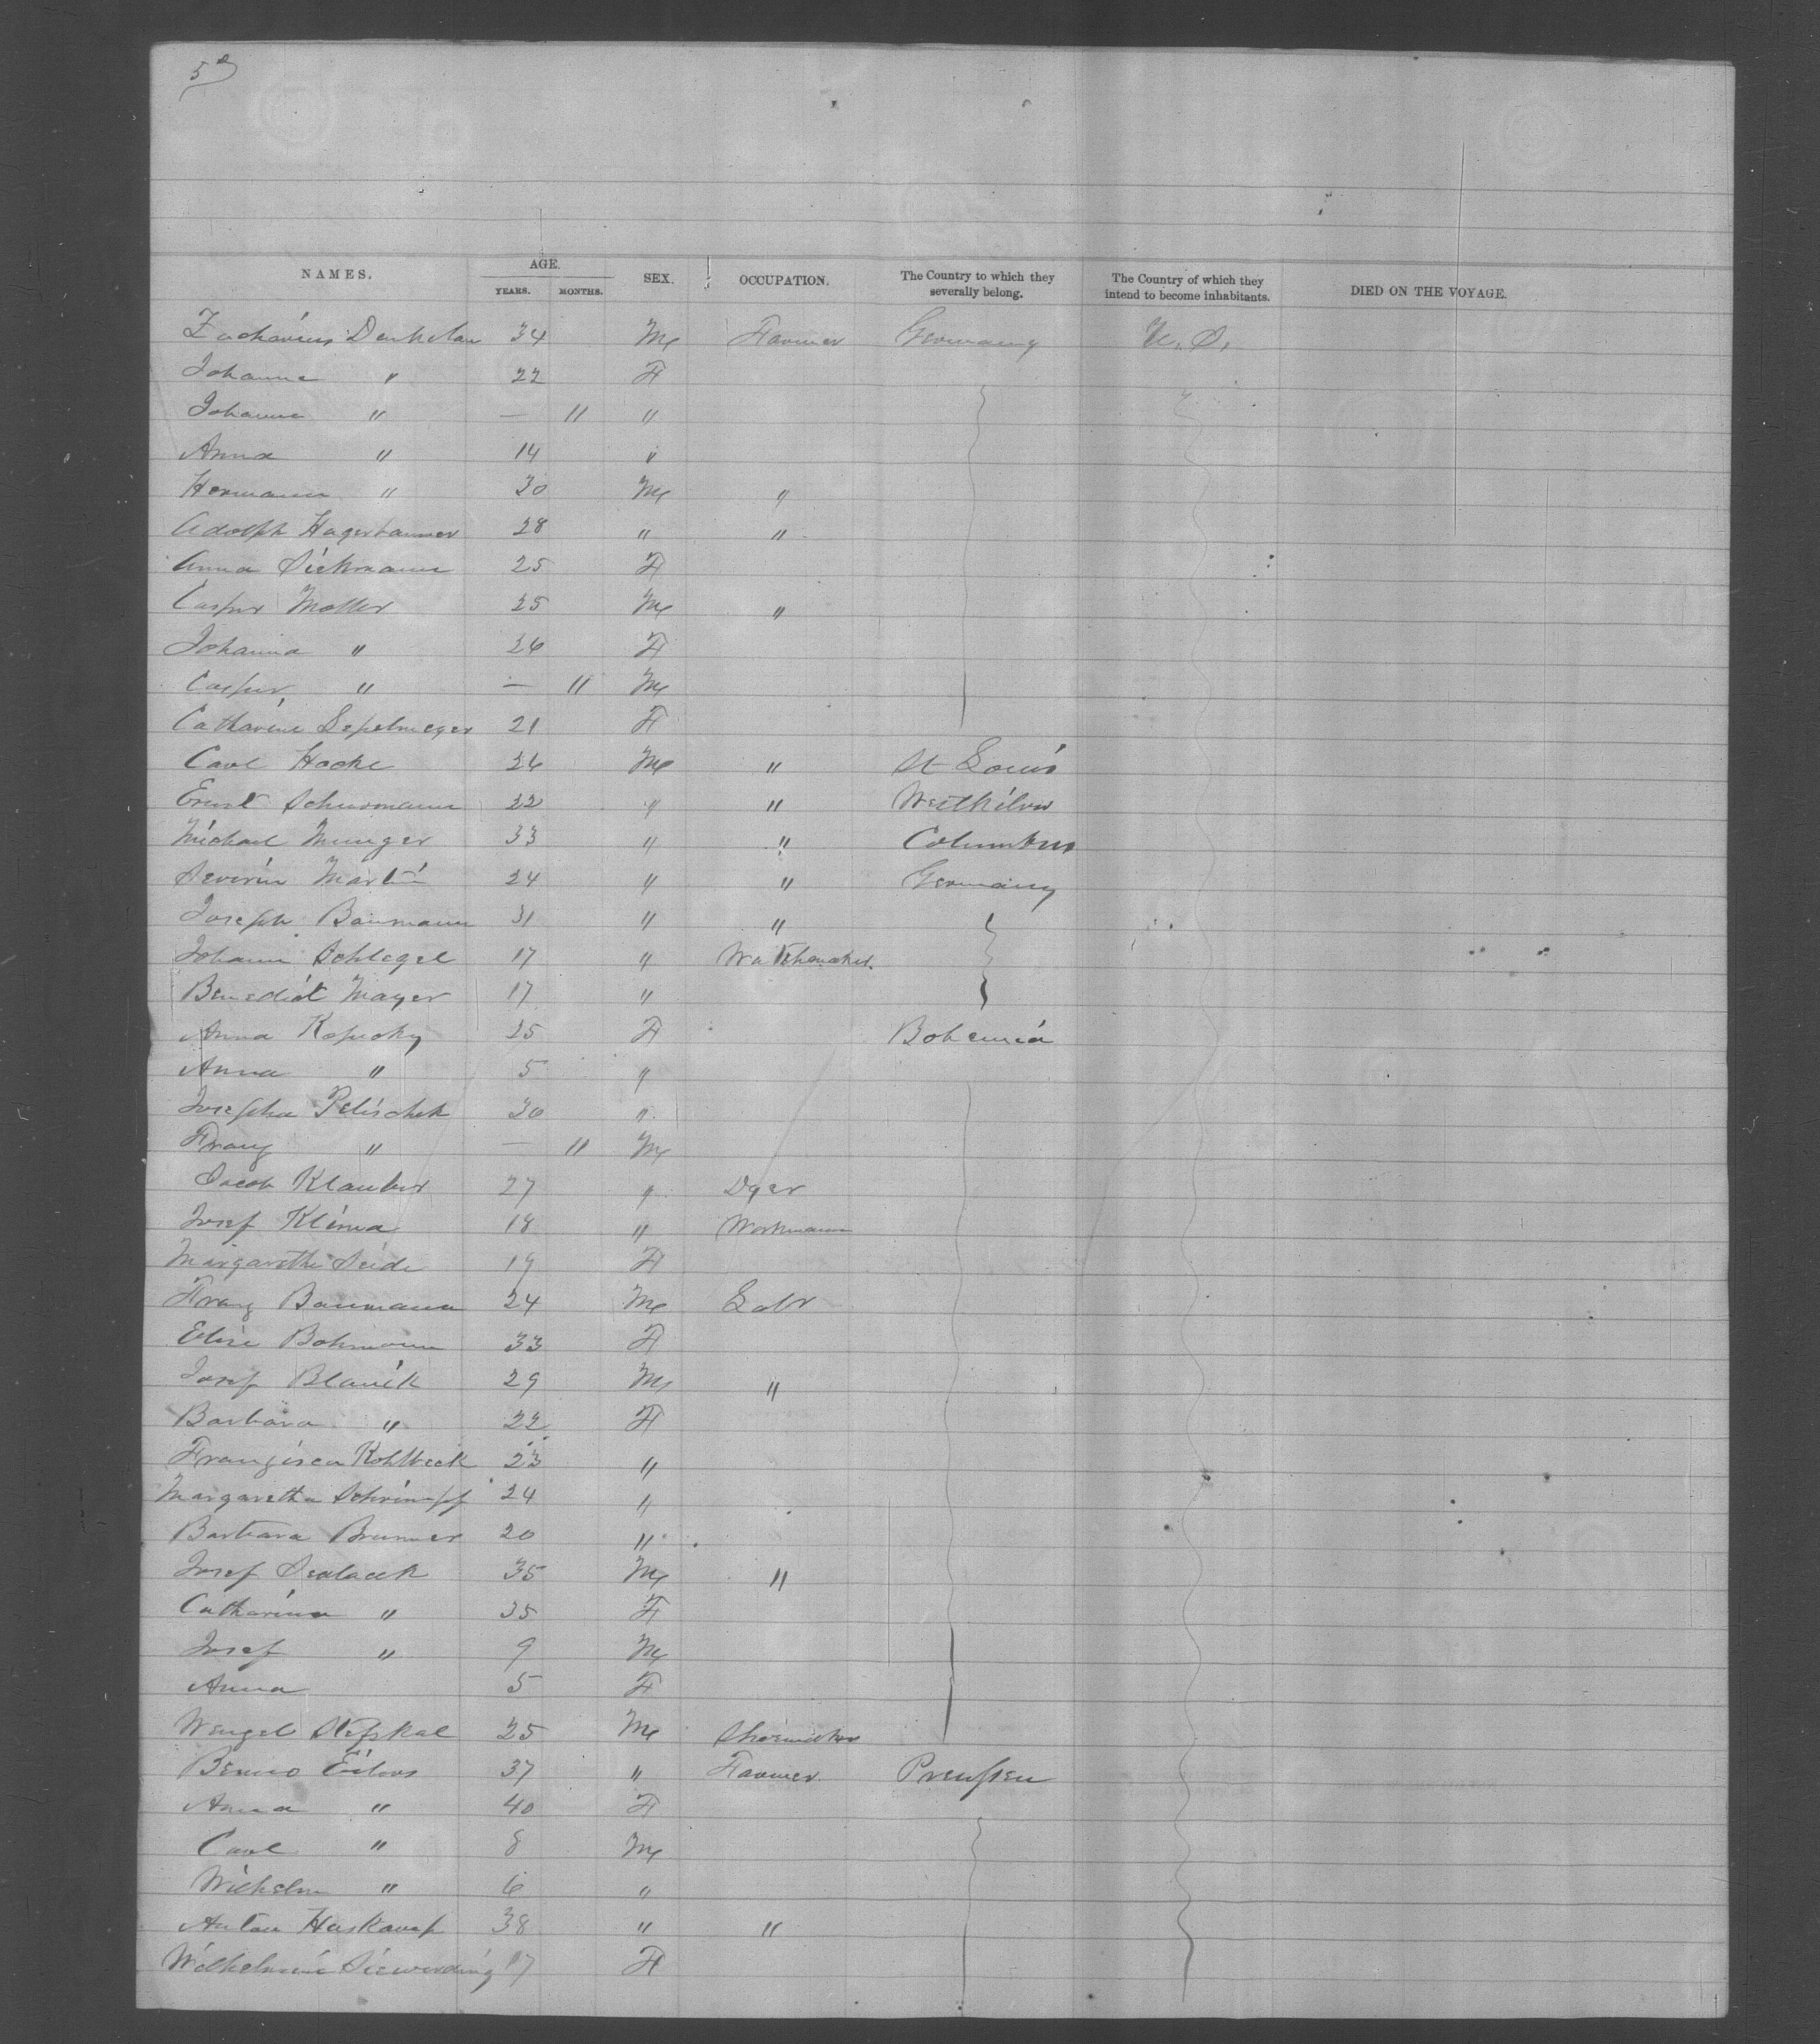 5
NAMES. AGE. YEARS. MONTHS. SEX. OCCUPATION. The Country to which they severally belong. The Country of which they intend to become inhabitants. DIED ON THE VOYAGE.
34 M Farmer Germany U. S.
Johanna " 22 F
Johanna " — 11 "
Anna " 14 "
Hermann " 30 M "
Adolph 28 " "
Anna Siekmann 25 F
Casper Moller 25 M "
Johanna " 26 F
Casper " — 11 M
Catharine 21 F
Carl Hocke 26 M " St Louis
Ernst Schurmann 22 " "
Michael Munger 33 " " Columbus
Severin Martin 24 " " Germany
Joseph Baumann 31 " "
Johann Schlegel 17 " Watchmaker
Benedict Mayer 17 "
Anna 25 F Bohemia
Anna " 5 "
Josepha Pelischek 30 "
Franz " — 11 M
Jacob Klauber 27 " Dyer
Josef Klima 18 " Workmann
Margarethe Seide 19 F
Franz Baumann 24 M Labr
Elise Bohmann 33 F
Josef Blanik 29 M "
Barbara " 22 F
Franzisca Kohlbeck 23 "
Margaretha Schrimpf 24 "
Barbara Brunner 20 "
Josef Sedlacek 35 M "
Catharina " 35 F
Josef " 9 M
Anna 5 F
Wenzel 25 M Shoemaker
Benno Eilers 37 " Farmer Preußen
Anna " 40 F
Carl " 8 M
Wilhelm " 6 "
Anton Huskamp 38 " "
Wilhelmine 17 F